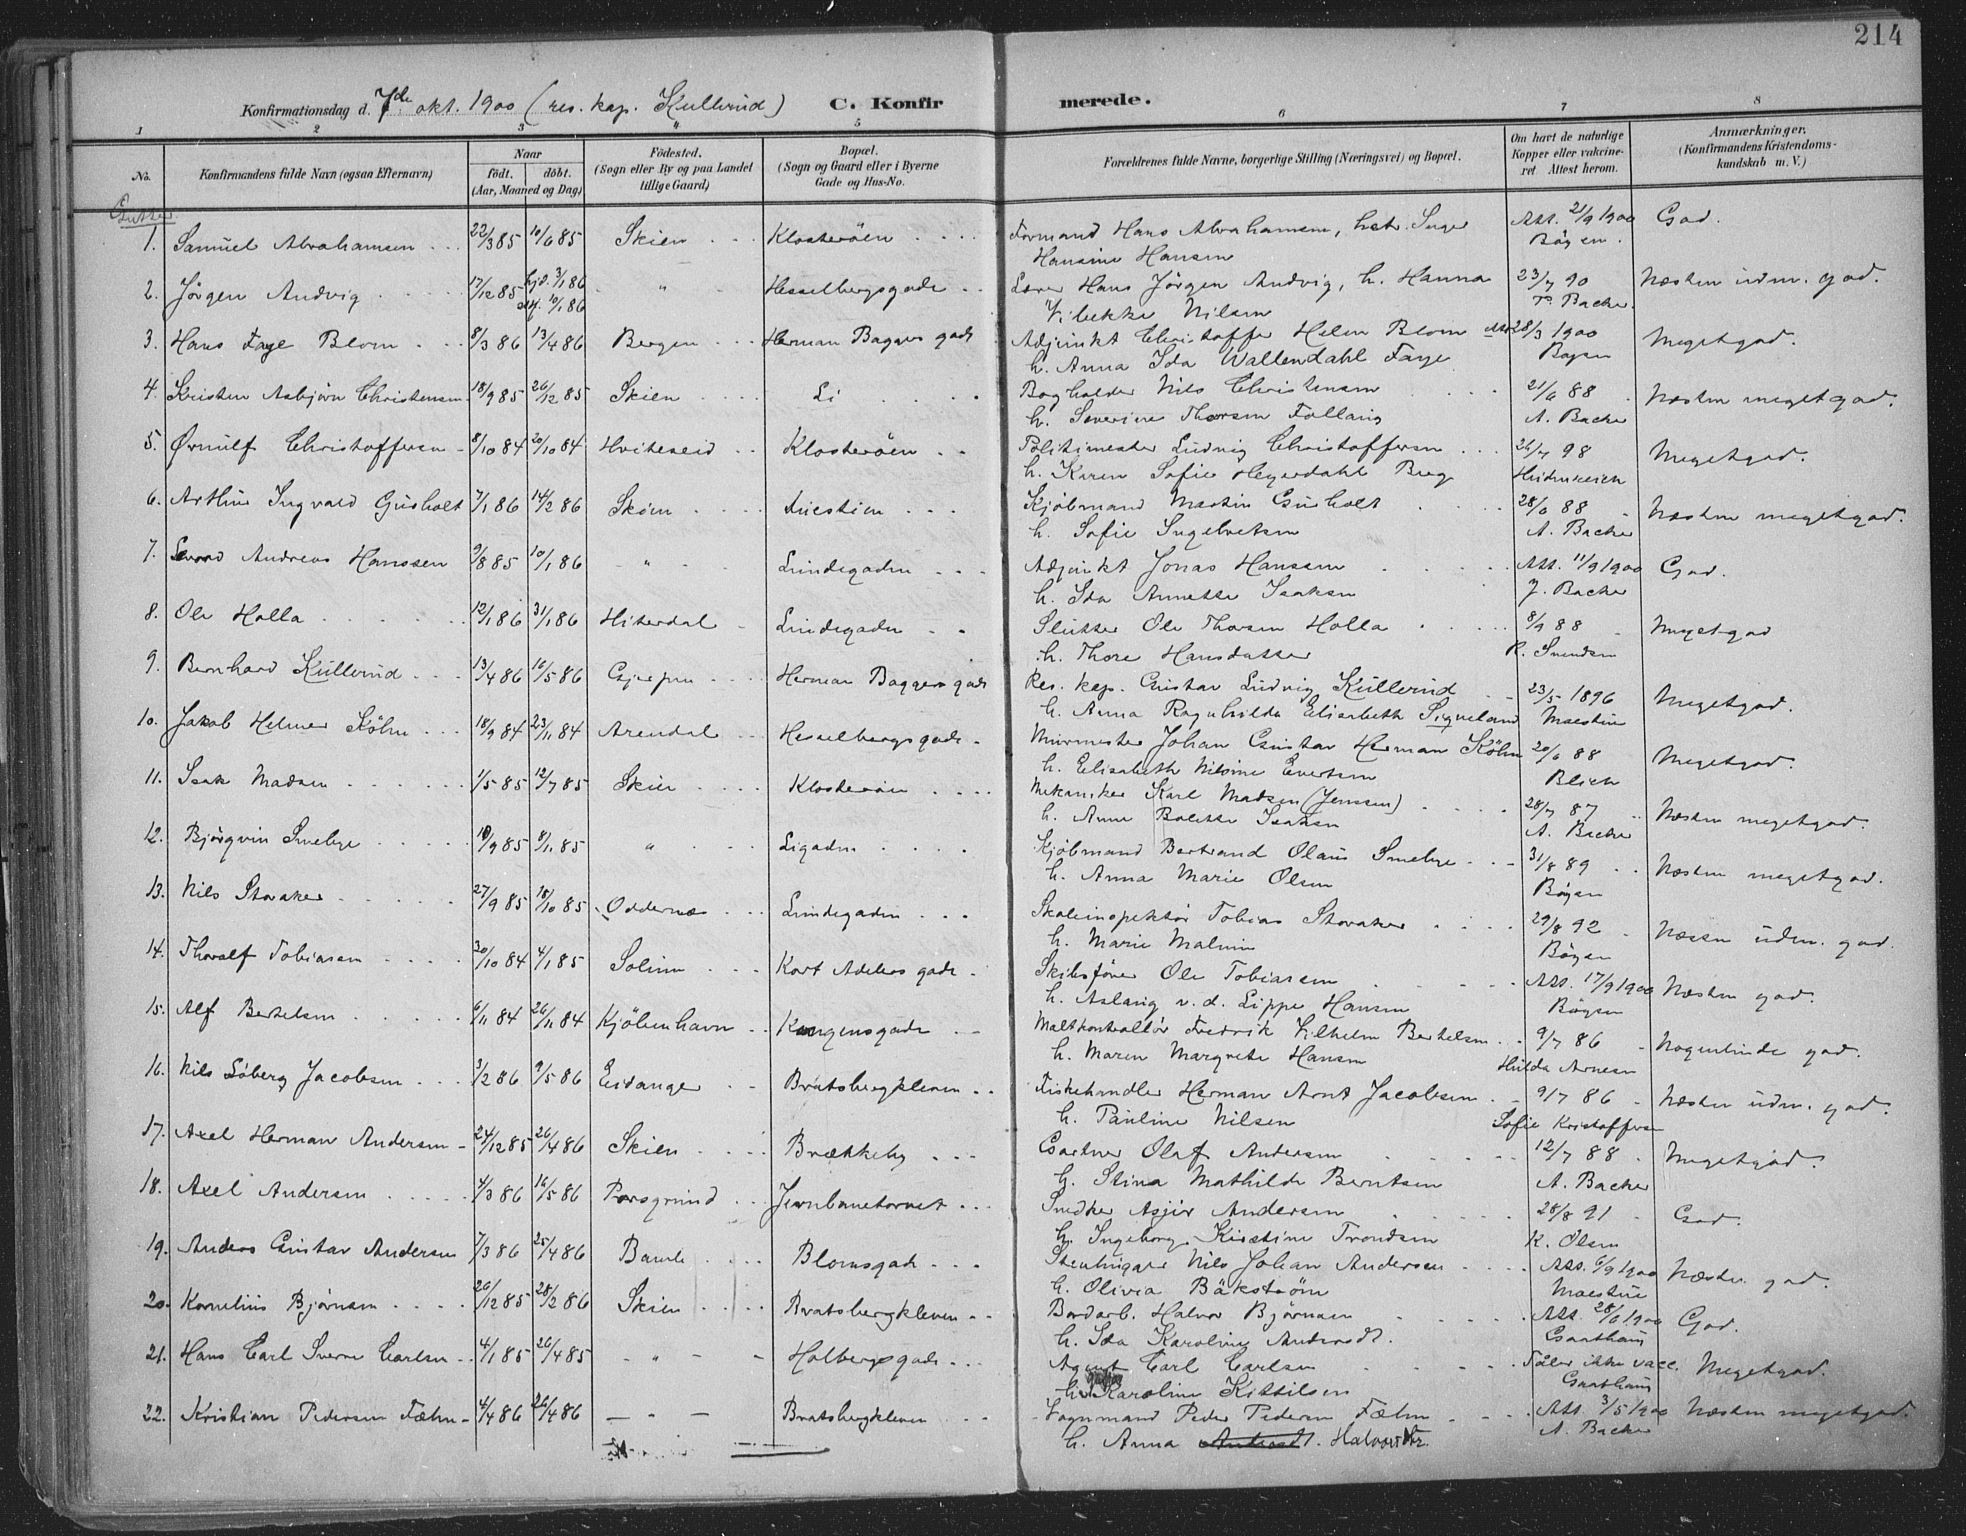 214
Konfirmationsdag d. 7de okt. 1900 (res. kap. Kullerud) C. Konfirmerede.
1 2 3 4 5 6 7 8
No. Konfirmandens fulde Navn (ogsaa Efternavn) Naar født. døbt. (Aar, Maaned og Dag) Fødested. (Sogn eller By og paa Landet tillige Gaard) Bopæl. (Sogn og Gaard eller i Byerne Gade og Hus-No. Forældrenes fulde Navne, borgerlige Stilling (Næringsvei) og Bopæl. Om havt de naturlige Kopper eller vakcineret. Attest herom. Anmærkninger. (Konfirmandens Kristendomskundskab m. V.)
Gutter.
1. Samuel Abrahamsen 22/3 85 10/6 85 Skien Klosterøen Formand Hans Abrahamsen, hstr. Inger Att. 21/9 1900 God.
Hansine Hansen Bøysen.
2. Jørgen Andvig 17/12 85 hjd. 3/1 86 " Hesselbergsgade Lærer Hans Jørgen Andvig, h. Hanna 23/7 90 Næsten udm. god.
10/1 86 Vibekke Nilsen P. Backer.
3. Hans Faye Blom 8/3 86 13/4 86 Bergen Herman Baggers gade Adjunkt Christoffer Helen Blom Att 28/3 1900 Megetgod.
h. Anna Ida Wallendahl Faye Bøysen
4. Kristen Asbjørn Christensen 18/9 85 26/12 85 Skien Li Bogholder Nils Christensen 21/6 88 Næsten megetgod.
h. Severine Thorsen Follaug A. Backer
5. Ørnulf Christoffersen 8/10 84 20/10 84 Hviteseid Klosterøen Politimester Ludvig Christoffersen 26/7 98 Megetgod.
h. Karen Sofie Heyerdahl Berg
6. Arthur Ingvald Gusholt 7/1 86 14/2 86 Skien Kjøbmand Martin Gusholt 28/6 88 Næsten megetgod.
h. Sofie Ingebretsen A. Backer
7. Andreas Hanssen 9/8 85 10/1 86 " Lundegaden Adjunkt Jonas Hanssen Att. 11/9 1900 God.
h. Ida Annette Isaksen J. Backer
8. Ole Holla 12/1 86 31/1 86 Hiterdal Lundegaden Slutter Ole Thorsen Holla 8/9 88 Megetgod
h. Thore Hansdatter R. Svendsen
9. Bernhard Kullerud 13/4 86 16/5 86 Gjerpen Herman Baggers gade Res. kap. Gustav Ludvig Kullerud 23/5 1896 Megetgod.
h. Anna Ragnhilda Elisabeth Siqveland Maestue
10. Jakob Helmer Köhn 18/9 84 23/11 84 Arendal Hesselbergs gade Murmester Johan Gustav Herman Köhn 20/6 88 Megetgod.
h. Elisabeth Nilsine Evertsen Blich
11. Isak Madsen 1/5 85 12/7 85 Skien Klosterøen Mekaniker Karl Madsen (Jenssen) 28/7 87 Næsten megetgod.
h. Anne Bolette Isaksen A. Backer
12. Bjørgvin Smebye 10/9 85 8/11 85 " Ligaden Kjøbmand Bertrand Olaus Smebye 31/8 89 Næsten megetgod.
h. Anna Marie Olsen Bøysen
13. Nils Stovaker 27/9 85 18/10 85 Oddernæs Lundegaden Skoleinspektør Tobias Stovaker 29/8 92 Næsten udm. god.
h. Marie Malmin Bøysen
14. Thoralf Tobiasen 30/10 84 4/1 85 Solum Kort Adelers gade Skibsfører Ole Tobiassen Att. 17/9 1900 Næsten god.
h. Aslaug v. d. Lippe Hansen Bøysen
15. Alf Bertelsen 6/11 84 26/11 84 Kjøbenhavn Kongensgade Maltkontrollør Fredrik Vilhelm Bertelsen 9/7 86 Nogenlunde god.
h. Maren Margrete Hansen Hulda Arnesen
16. Nils Løberg Jacobsen 3/2 86 9/5 86 Eidanger Bratsbergkleven Fiskehandler Herman Arnt Jacobsen 9/7 86 Næsten udm. god.
h. Pauline Nilsen Sofie Kristoffersen
17. Axel Herman Andersen 24/12 85 26/4 86 Skien Brækkeby Gartner Olaf Andersen 12/7 88 Megetgod.
h. Stina Mathilde Berntsen A. Backer
18. Axel Andersen 4/3 86 16/5 86 Porsgrund Jernbanetorvet Snedker Asjer Andersen 28/8 91 God.
h. Ingeborg Kirstine Trondsen K. Olsen
19. Anders Gustav Andersen 7/3 86 25/4 86 Bamle Blomsgade Stenhugger Nils Johan Andersen Att. 6/9 1900 Næsten god.
h. Olivia Bäkström Maestue
20. Kornelius Bjørnsen 26/12 85 28/2 86 Skien Bratsbergkleven Bordarb. Halvor Bjørnsen Att. 28/6 1900 God.
h. Ida Karoline Andersdt. Gaarthaus
21. Hans Carl Sverre Carlsen 4/1 85 26/4 85 " Holbergsgade Agent Carl Carlsen Tåler ikke vacc. Megetgod.
h. Karoline Kittilsen Gaarthaus
22. Kristian Pedersen Fæhn 4/4 86 26/4 86 " Bratsbergkleven Vognmand Peder Pedersen Fæhn Att. 3/5 1900 Næsten megetgod.
h. Anna Halvorsdtr. A. Backer